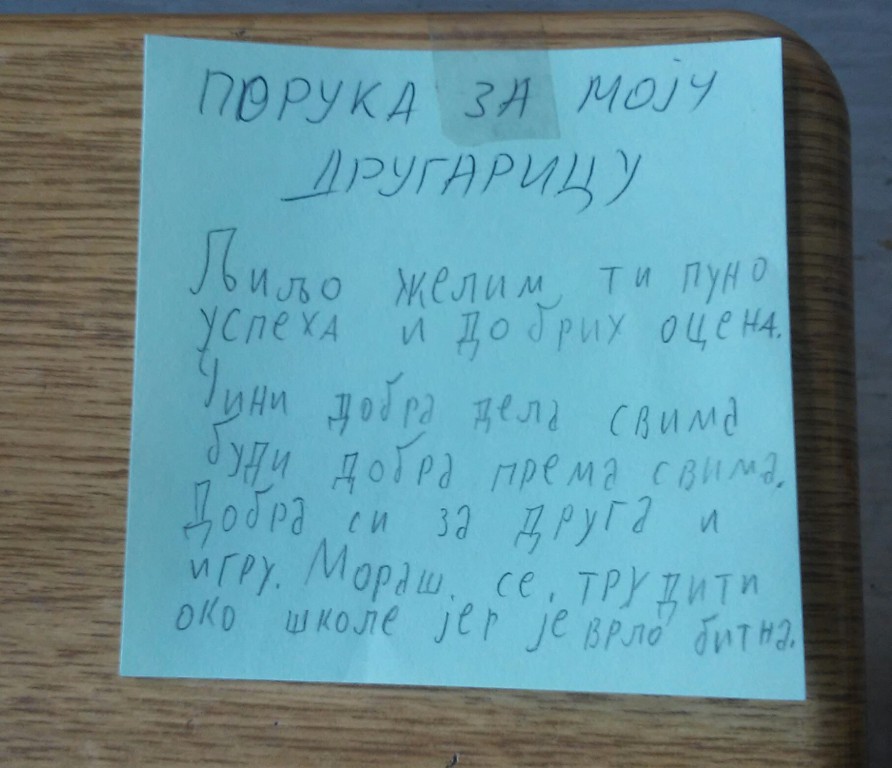 ПОРУКА ЗА МОЈУ
ДРУГАРИЦУ
Љиљо желим ти пуно
успеха и добрих оцена.
Чини добра дела свима
буди добра према свима.
Добра си за друга и
игру. Мораш. се. трудити
око школе јер је врло битна.